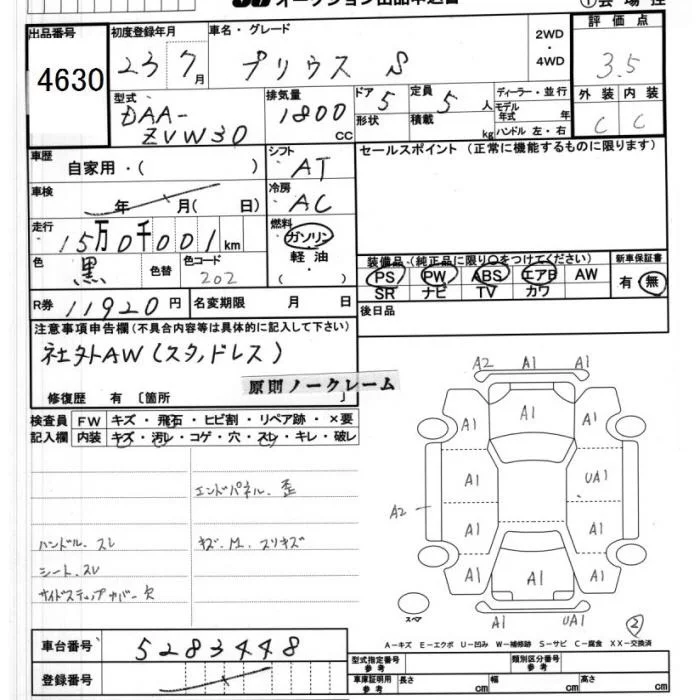 出品番号 初度登録年月 車名・グレード 2WD 評価点
4630 23 7月 プリウス S ・4WD 3.5
型式 排気量 ドア 定員 ディーラー・並行 外装 内装
DAA- 1800 5 5人 モデル年式 年 C C
ZVW30 cc 形状 積載 kg ハンドル 左・右
車歴 シフト セールスポイント(正常に機能するものに限ります)
自家用・( ) AT
車検 冷房
年 月( 日) AC
走行 燃料
15万0千001km ガソリン
色 色替 色コード 軽油 装備品・(純正品に限り○をつけてください) 新車保証書
黒 202 ( ・ ) PS PW ABS エアB AW 有・無
SR ナビ TV カワ
R券 11920円 名変期限 月 日 後日品
注意事項申告欄(不具合内容等は具体的に記入して下さい)
社外AW(スタッドレス)
原則ノークレーム
修復歴 有 〔箇所 〕
検査員 FW キズ・飛石・ヒビ割・リペア跡・×要
記入欄 内装 キズ・汚レ・コゲ・穴・スレ・キレ・破レ
エンドパネル、歪
ハンドル、スレ キズ、M、スリキズ
シート、スレ
サイドステップカバー、欠
A2 A1 A1
A1 A1 A1
A1 UA1
A2 A1 A1
A1 A1 A1
スペア A1 UA1 2
A-キズ E-エクボ U-凹み W-補修跡 S-サビ C-腐食 XX-交換済
車台番号 5283448 型式指定番号 参考 類別区分番号 参考
登録番号 車庫証明用 参考 長さ cm 幅 cm 高さ cm